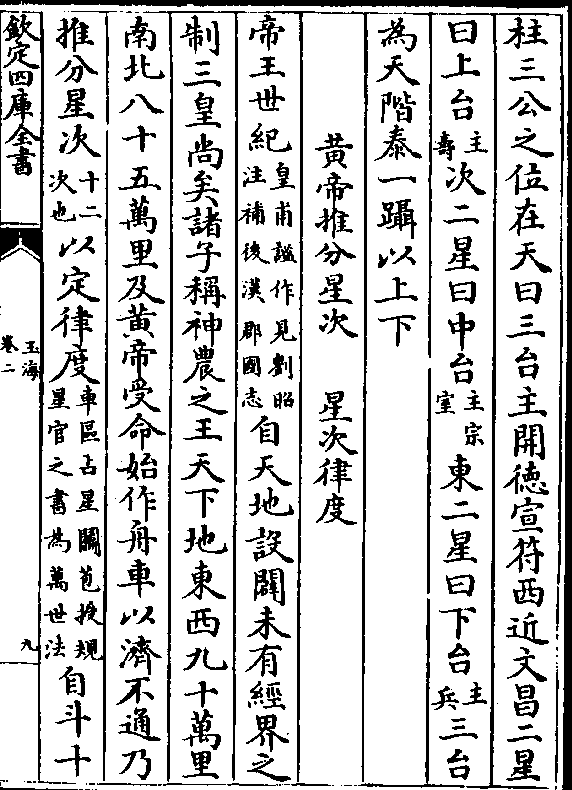 柱三公之位在天曰三台主開徳宣符西近文昌二星
曰上台主壽次二星曰中台主宗室東二星曰下台主兵三台
為天階泰一躡以上下
黄帝推分星次　星次律度
帝王世紀皇甫謐作見劉昭注補後漢郡國志自天地設闢未有經界之
制三皇尚矣諸子稱神農之王天下地東西九十萬里
南北八十五萬里及黄帝受命始作舟車以濟不通乃
推分星次十二次也以定律度車區占星闘苞授規星官之書為萬世法自斗十
欽定四庫全書
玉海
卷二
九